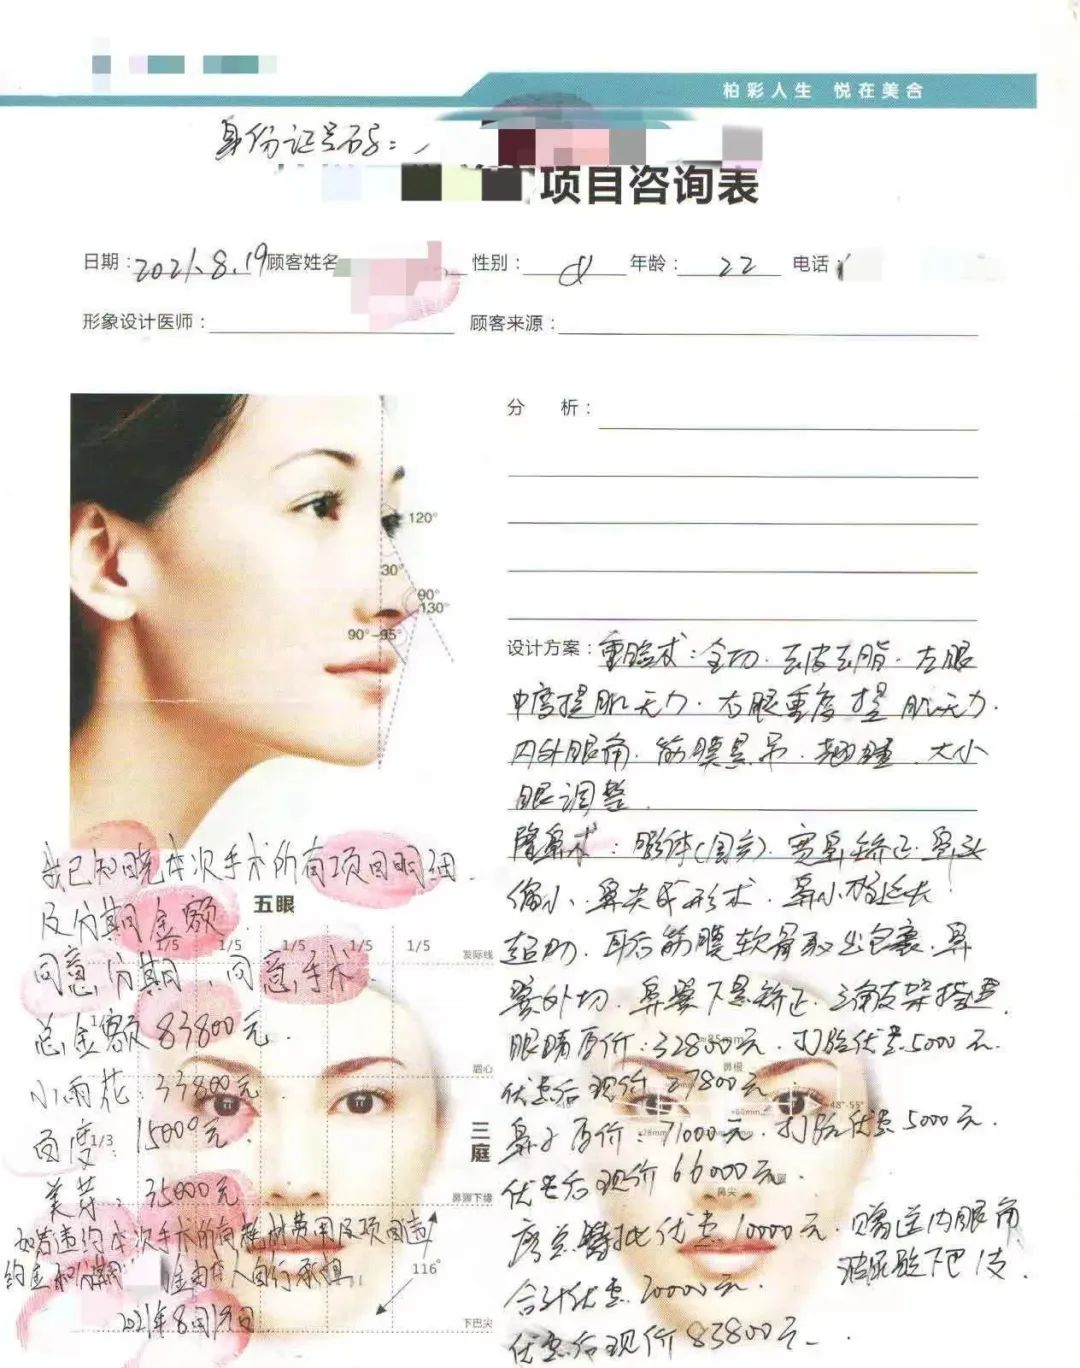 柏彩人生 悦在美合
身份证号码：
项目咨询表
日期：2021.8.19 顾客姓名 性别：女 年龄：22 电话：
形象设计医师： 顾客来源：
分 析：
120°
30°
90°
130°
90°-95°
设计方案：重睑术：全切.去皮去脂.左眼
中度提肌无力.右眼重度提肌无力.
内外眼角.筋膜悬吊. 大小
眼调整.
隆鼻术：膨体(国产).宽鼻矫正.鼻头
缩小.鼻尖成形术.鼻小柱延长
耳后筋膜软骨取出包裹.鼻
翼外切.鼻翼下悬矫正.三角支架搭建.
眼睛原价：32800元.打脸优惠5000元.
优惠后现价27800元.
鼻子原价：71000元.打脸优惠5000元.
优惠后现价66000元.
特批优惠10000元.赠送内眼角
玻尿酸下巴1支.
合计优惠20000元.
优惠后现价83800元.
我已知晓本次手术所有项目明细.
及分期金额.
同意分期，同意手术.
总金额83800元.
小雨花：33800元.
百度：15000元.
美芽：35000元.
如若违约本次手术所有耗材费用及项目违
约金和分期 金由本人自行承担.
2021年8月19日
五眼
1/5 1/5 1/5 1/5 1/5
发际线
眉心
1/3
三庭
鼻翼下缘
116°
下巴尖
鼻根
48°-55°
鼻尖